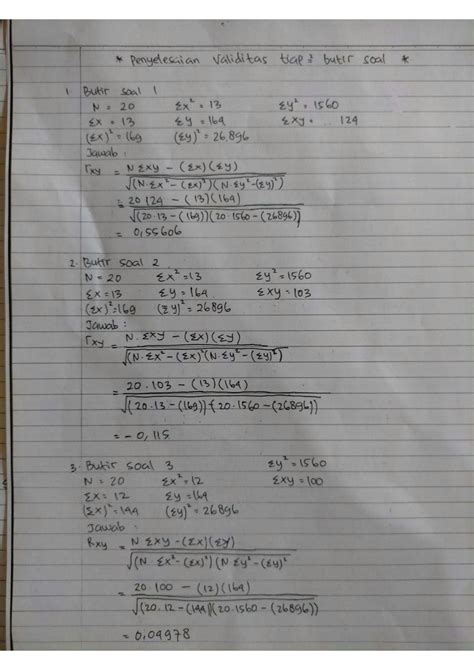 * Penyelesaian Validitas tiap² butir soal *
1. Butir soal 1
N = 20 Σx² = 13 Σy² = 1560
Σx = 13 Σy = 164 Σxy = 124
(Σx)² = 169 (Σy)² = 26.896
Jawab :
rxy = N Σxy - (Σx)(Σy)
√(N·Σx² - (Σx)²)(N·Σy² - (Σy)²)
= 20·124 - (13)(164)
√(20·13 - (169))(20·1560 - (26896))
= 0,55606
2. Butir soal 2
N = 20 Σx² = 13 Σy² = 1560
Σx = 13 Σy = 164 Σxy = 103
(Σx)² = 169 (Σy)² = 26896
Jawab :
rxy = N·Σxy - (Σx)(Σy)
√(N·Σx² - (Σx)²(N·Σy² - (Σy)²)
= 20·103 - (13)(164)
√(20·13 - (169))(20·1560 - (26896))
= -0,115
3. Butir soal 3 Σy² = 1560
N = 20 Σx² = 12 Σxy = 100
Σx = 12 Σy = 164
(Σx)² = 144 (Σy)² = 26896
Jawab :
Rxy = N·Σxy - (Σx)(Σy)
√(N·Σx² - (Σx)²)(N Σy² - (Σy)²
= 20·100 - (12)(164)
√(20·12 - (144)(20·1560 - (26896))
= 0,04978